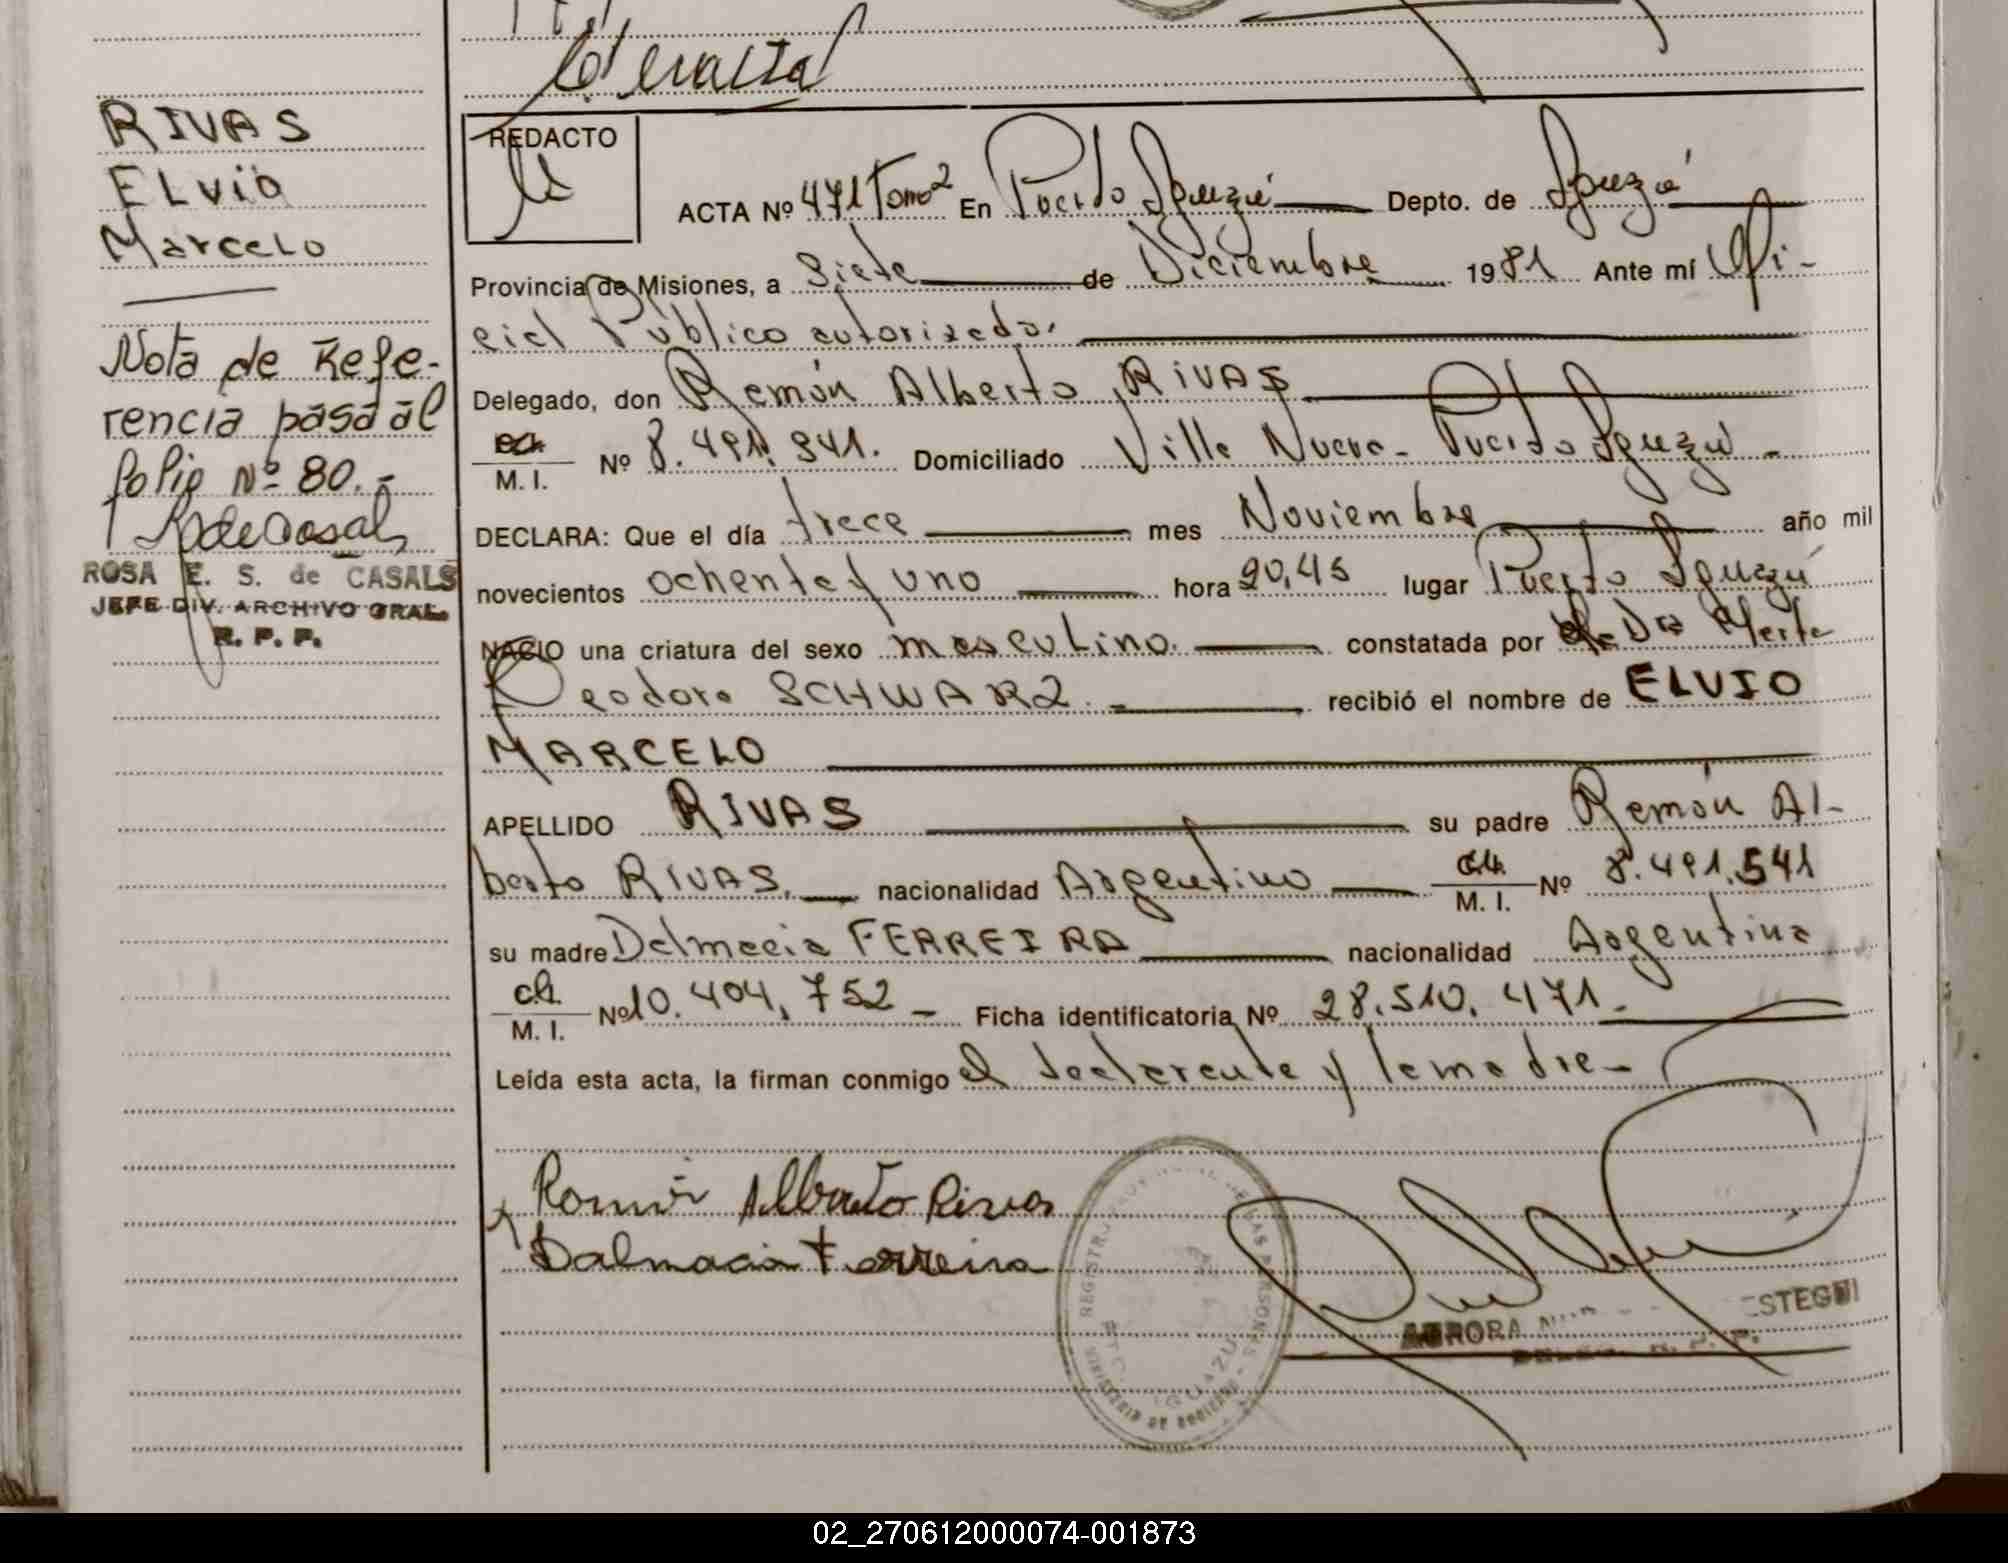 RIVAS
ELVIO
Marcelo
Nota de Refe-
rencia pasa al
folio Nº 80.-
ROSA E. S. de CASALS
JEFE DIV. ARCHIVO GRAL.
R. P. P.
Peralta
REDACTO
ACTA Nº 471 Tomo 2 En Puerto Iguazú Depto. de Iguazú
Provincia de Misiones, a Siete de Diciembre 1981 Ante mí Ofi-
cial Público autorizado.
Delegado, don Ramón Alberto RIVAS
M. I. Nº 8.491.541. Domiciliado Villa Nueva - Puerto Iguazú -
DECLARA: Que el día trece mes Noviembre año mil
novecientos ochenta y uno hora 20,45 lugar Puerto Iguazú
NACIO una criatura del sexo masculino. constatada por la Dra Marta
Teodora SCHWARZ. recibió el nombre de ELVIO
MARCELO
APELLIDO RIVAS su padre Ramón Al-
berto RIVAS. nacionalidad Argentino M. I. Nº 8.491.541
su madre Dalmacia FERREIRA nacionalidad Argentina
M. I. Nº 10.404.752 - Ficha identificatoria Nº 28.510.471 -
Leída esta acta, la firman conmigo el declarante y la madre -
Ramón Alberto Rivas
Dalmacia Ferreira
REGISTRO DE LAS PERSONAS
MINISTERIO DE GOBIERNO
IGUAZU
AURORA
02_270612000074-001873